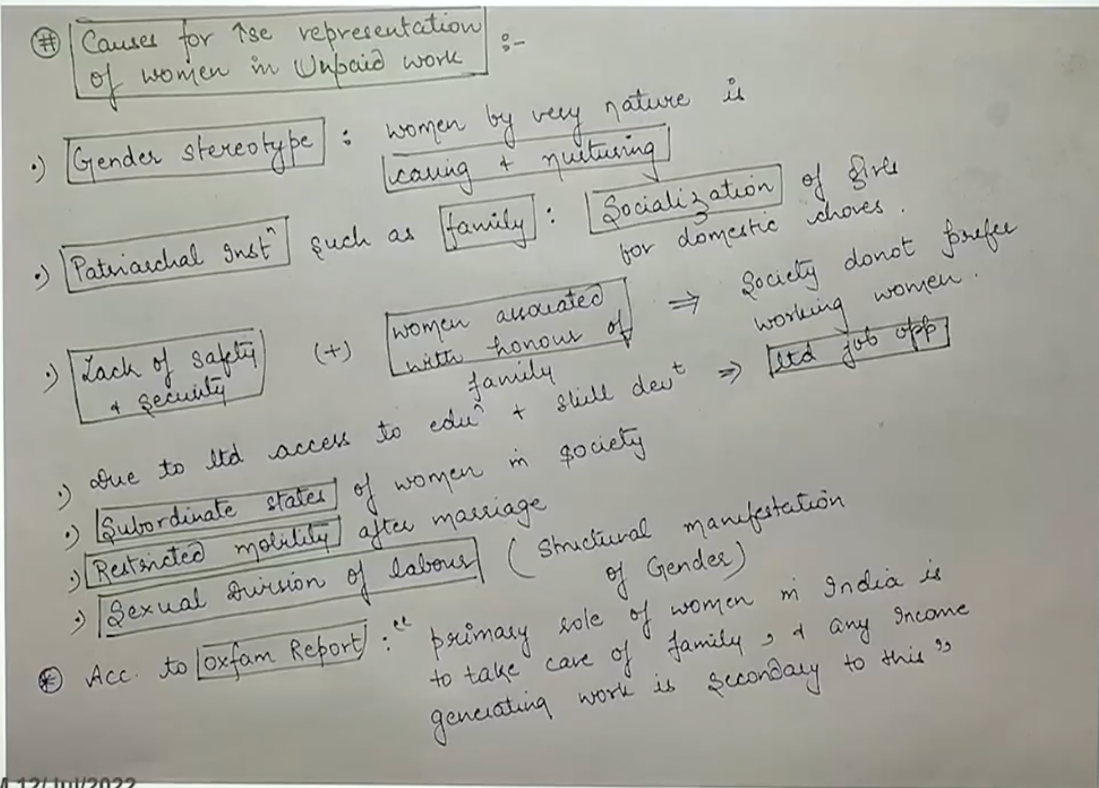 # Causes for ↑se representation
of women in Unpaid work :-
•) Gender stereotype : women by very nature is
caring + nurturing
•) Patriarchal Instⁿ such as family : Socialization of girls
for domestic chores.
•) Lack of safety (+) women associated ⇒ Society donot prefer
+ security with honour of working women.
family
•) Due to ltd access to eduⁿ + skill devᵗ ⇒ ltd job opp
•) Subordinate states of women in society
•) Restricted mobility after marriage
•) Sexual Division of labour (Structural manifestation
of Gender)
* Acc. to Oxfam Report : "primary role of women in India is
to take care of family, + any Income
generating work is secondary to this"
12/Jul/2022